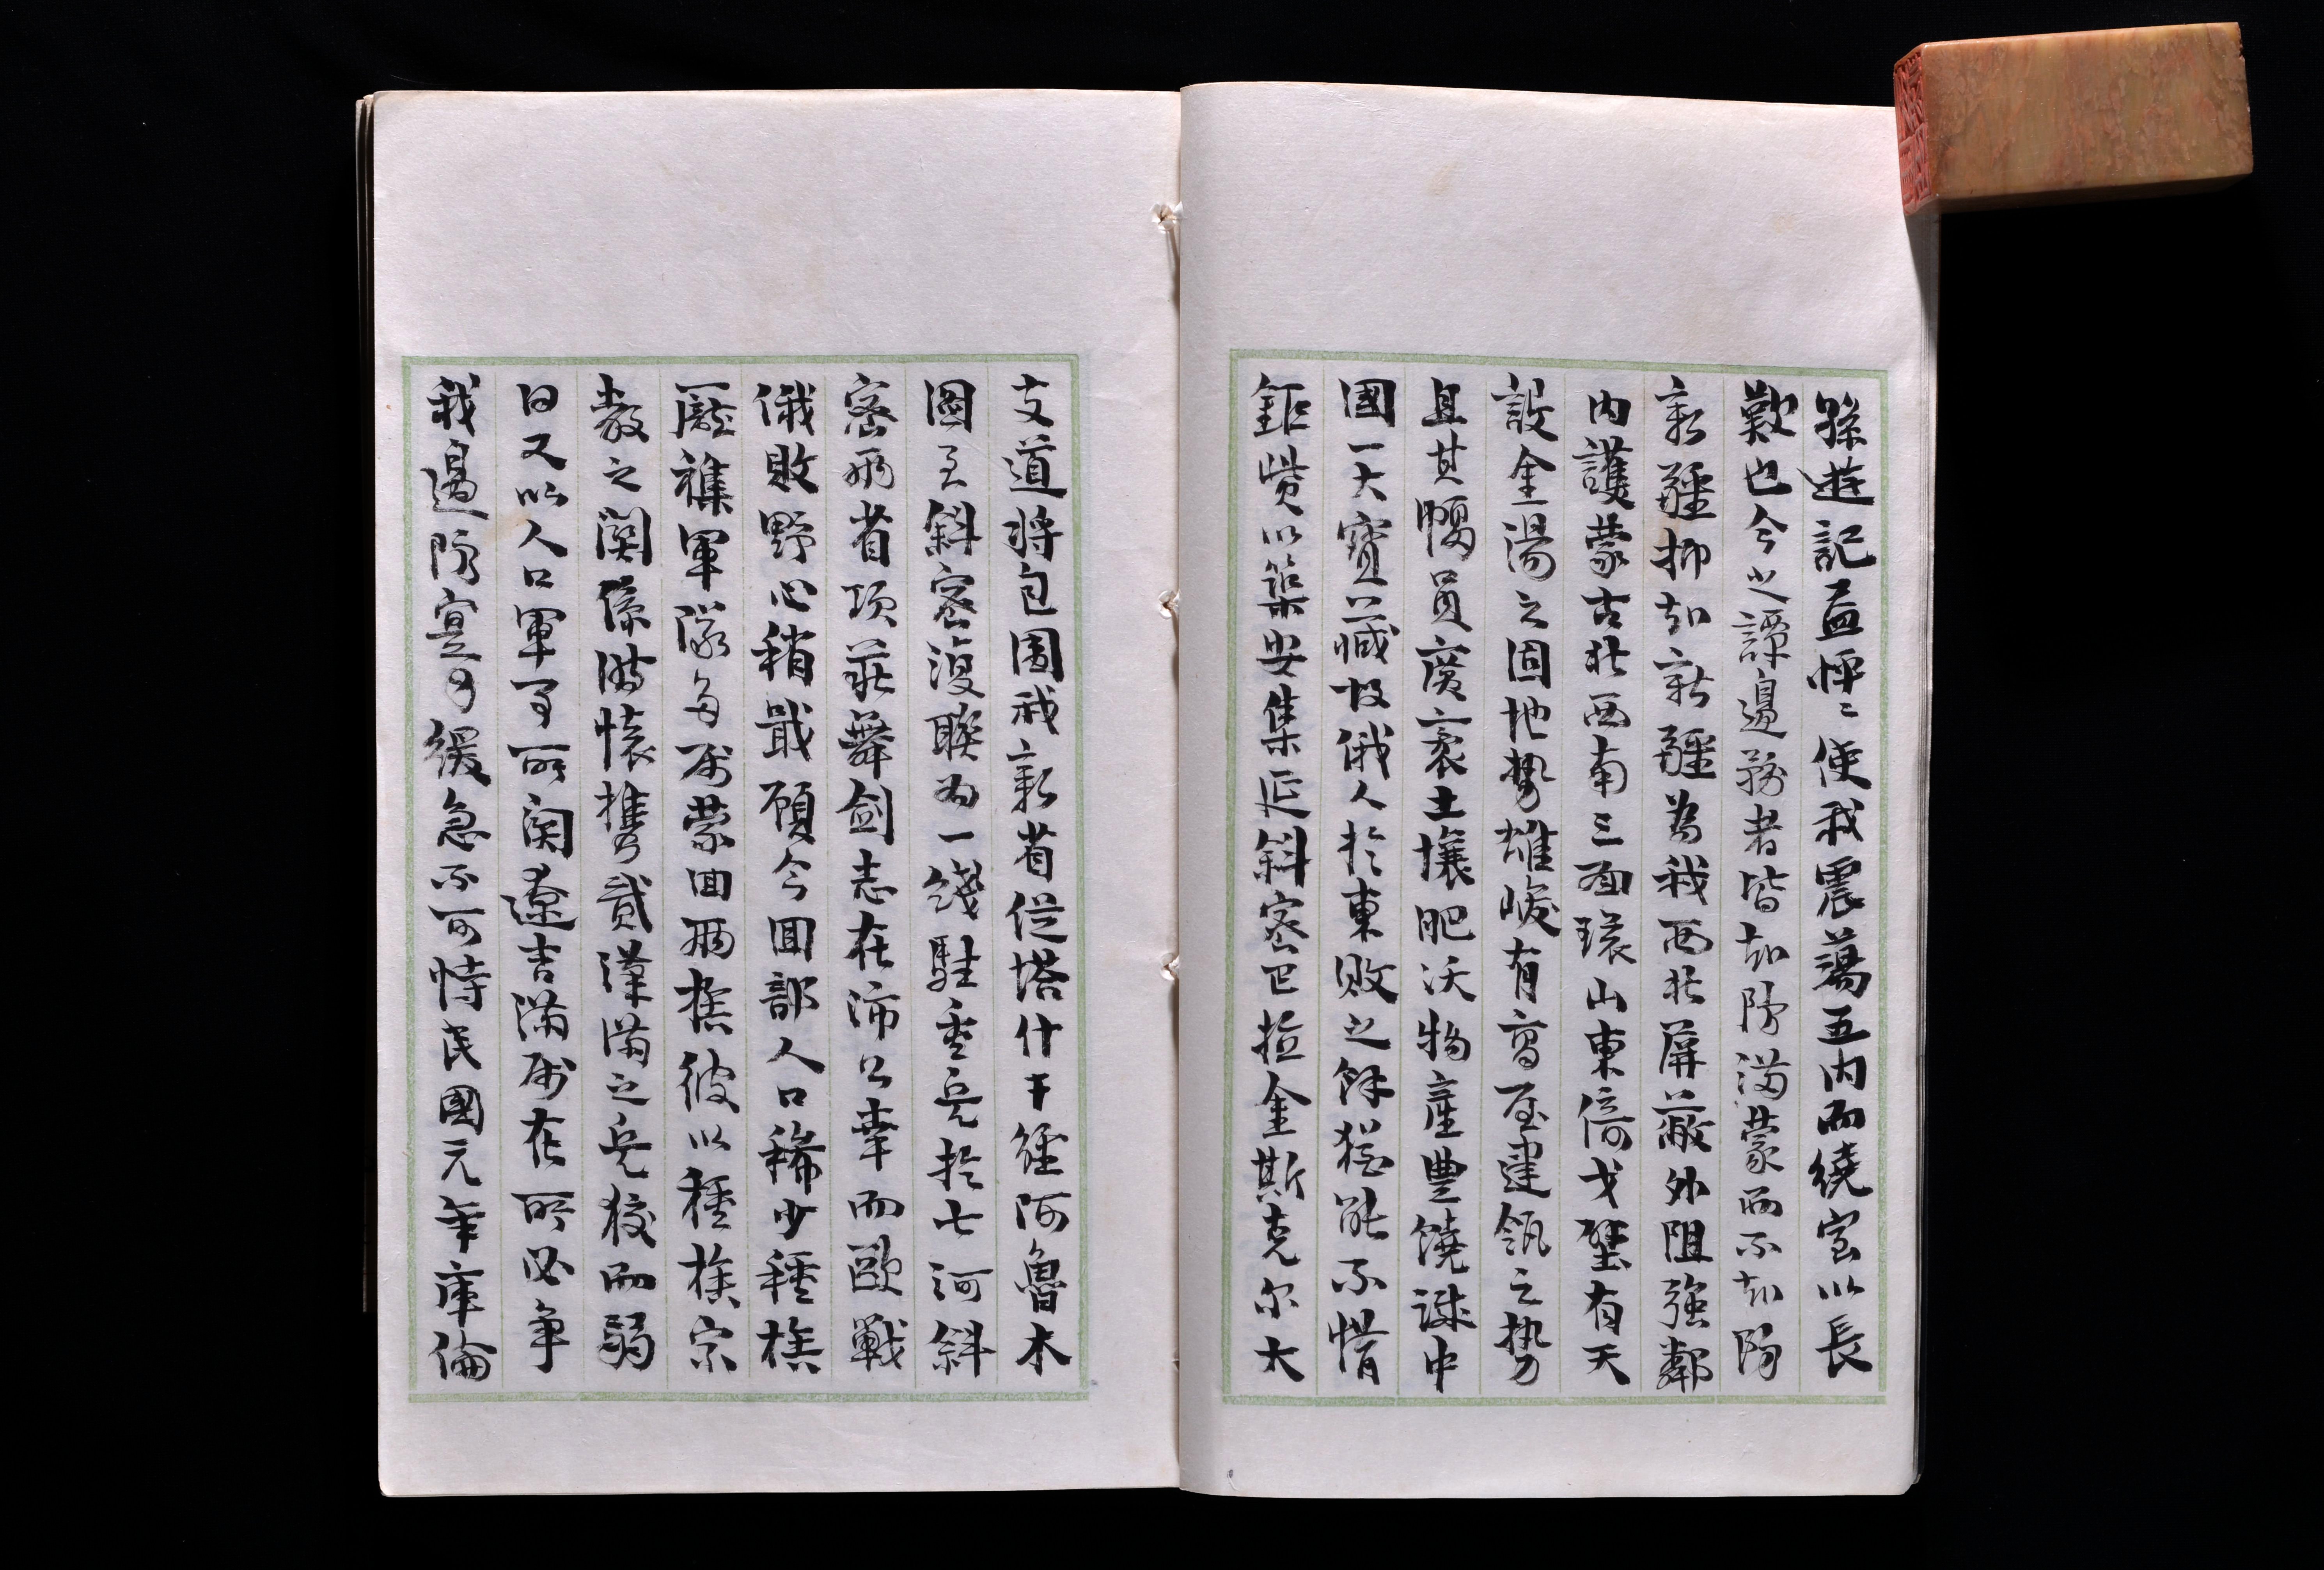 孫遊記益怦〻使我震蕩五内而繞室以長
歎也今之譚邊務者皆知防滿蒙而不知防
新疆抑知新疆為我西北屏蔽外阻強鄰
内護蒙古北西南三面環山東倚戈壁有天
設金湯之固地勢雄峻有高屋建瓴之勢
且其幅員廣袤土壤肥沃物產豐饒誠中
國一大寶藏故俄人於東敗之餘猶能不惜
鉅貲以築安集延斜密巴拉金斯克尔大
支道將包围我新省從塔什干経阿魯木
圖至斜密復聯為一綫駐重兵於七河斜
密兩省項莊舞劍志在沛公幸而歐戰
俄敗野心稍戢顧今回部人口稀少種族
龐襍軍隊多屬蒙回兩族彼以種族宗
教之関係時懷攜貳漢滿之兵狡而弱
曰又以人口軍事所関遼吉滿屬在所必争
我邊防寔可緩急不可恃民國元年庫倫